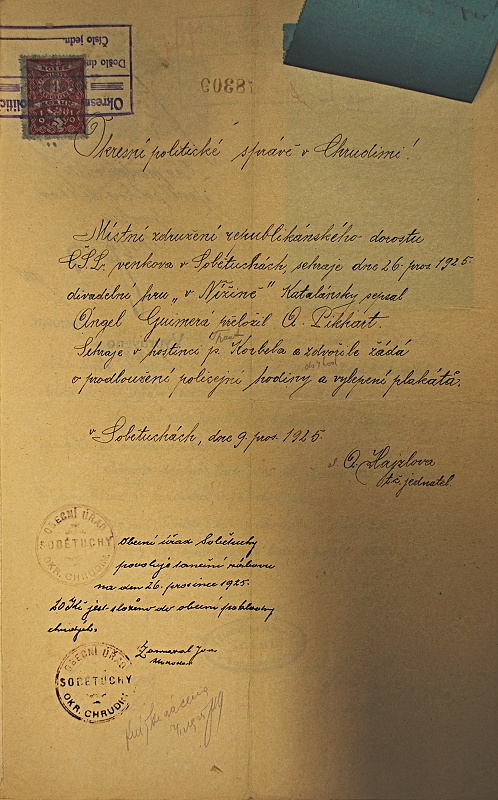 Okresní politické správě v Chrudimi!
Místní združení republikánského dorostu
ČSL. venkova v Sobětuchách, sehraje dne 26. pros. 1925
divadelní hru „v Nížině" Katalánsky sepsal
Àngel Guimerá přeložil A. Pikhart.
Sehraje v hostinci p. Korbela a zdvořile žádá
o prodloužení policejní hodiny a vylepení plakátů.
v Sobětuchách, dne 9. pros. 1925.
A. Hajzlova
t.č. jednatel.
OBECNÍ ÚŘAD
SOBĚTUCHY
OKR. CHRUDIM
Obecní úřad Sobětuchy
povoluje taneční zábavu
na den 26. prosince 1925.
20 Kč jest složeno do obecní pokladny
chudých.
OBECNÍ ÚŘAD
SOBĚTUCHY
OKR. CHRUDIM
Došlo dne
Číslo jedn.
78309